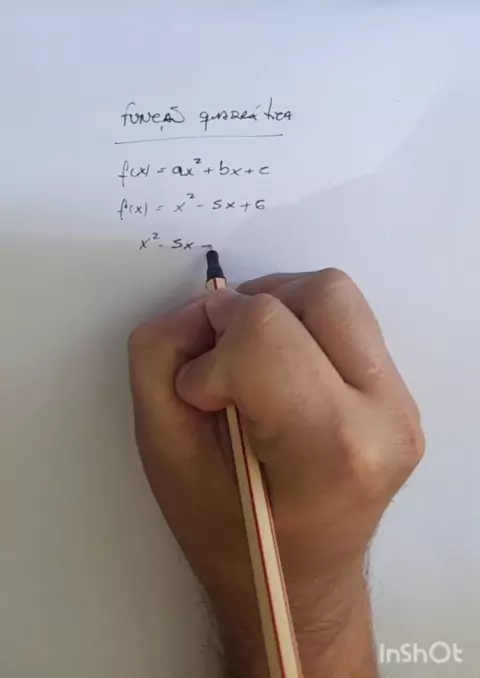 função quadrática
f(x) = ax² + bx + c
f(x) = x² - 5x + 6
x² - 5x -
InShOt